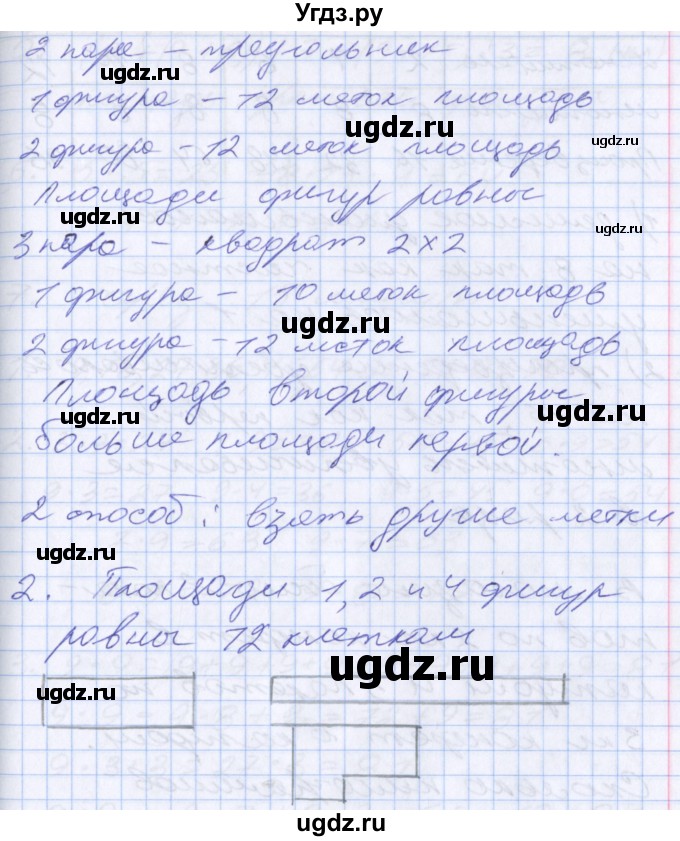 Угдз.ру
2 пара – треугольник
ugdz.ru
1 фигура – 12 меток площадь
ugdz.ru
ugdz.ru
2 фигура – 12 меток площадь
ugdz.ru
Площади фигур равны
ugdz.ru
ugdz.ru
3 пара – квадрат 2×2
1 фигура – 10 меток площадь
ugdz.ru
ugdz.ru
2 фигура – 12 меток площадь
Площадь второй фигуры
ugdz.ru
ugdz.ru
больше площади первой.
2 способ: взять другие метки
ugdz.ru
ugdz.ru
2. Площади 1, 2 и 4 фигур
равны 12 клеткам
ugdz.ru
ugdz.ru
ugdz.ru
ugdz.ru